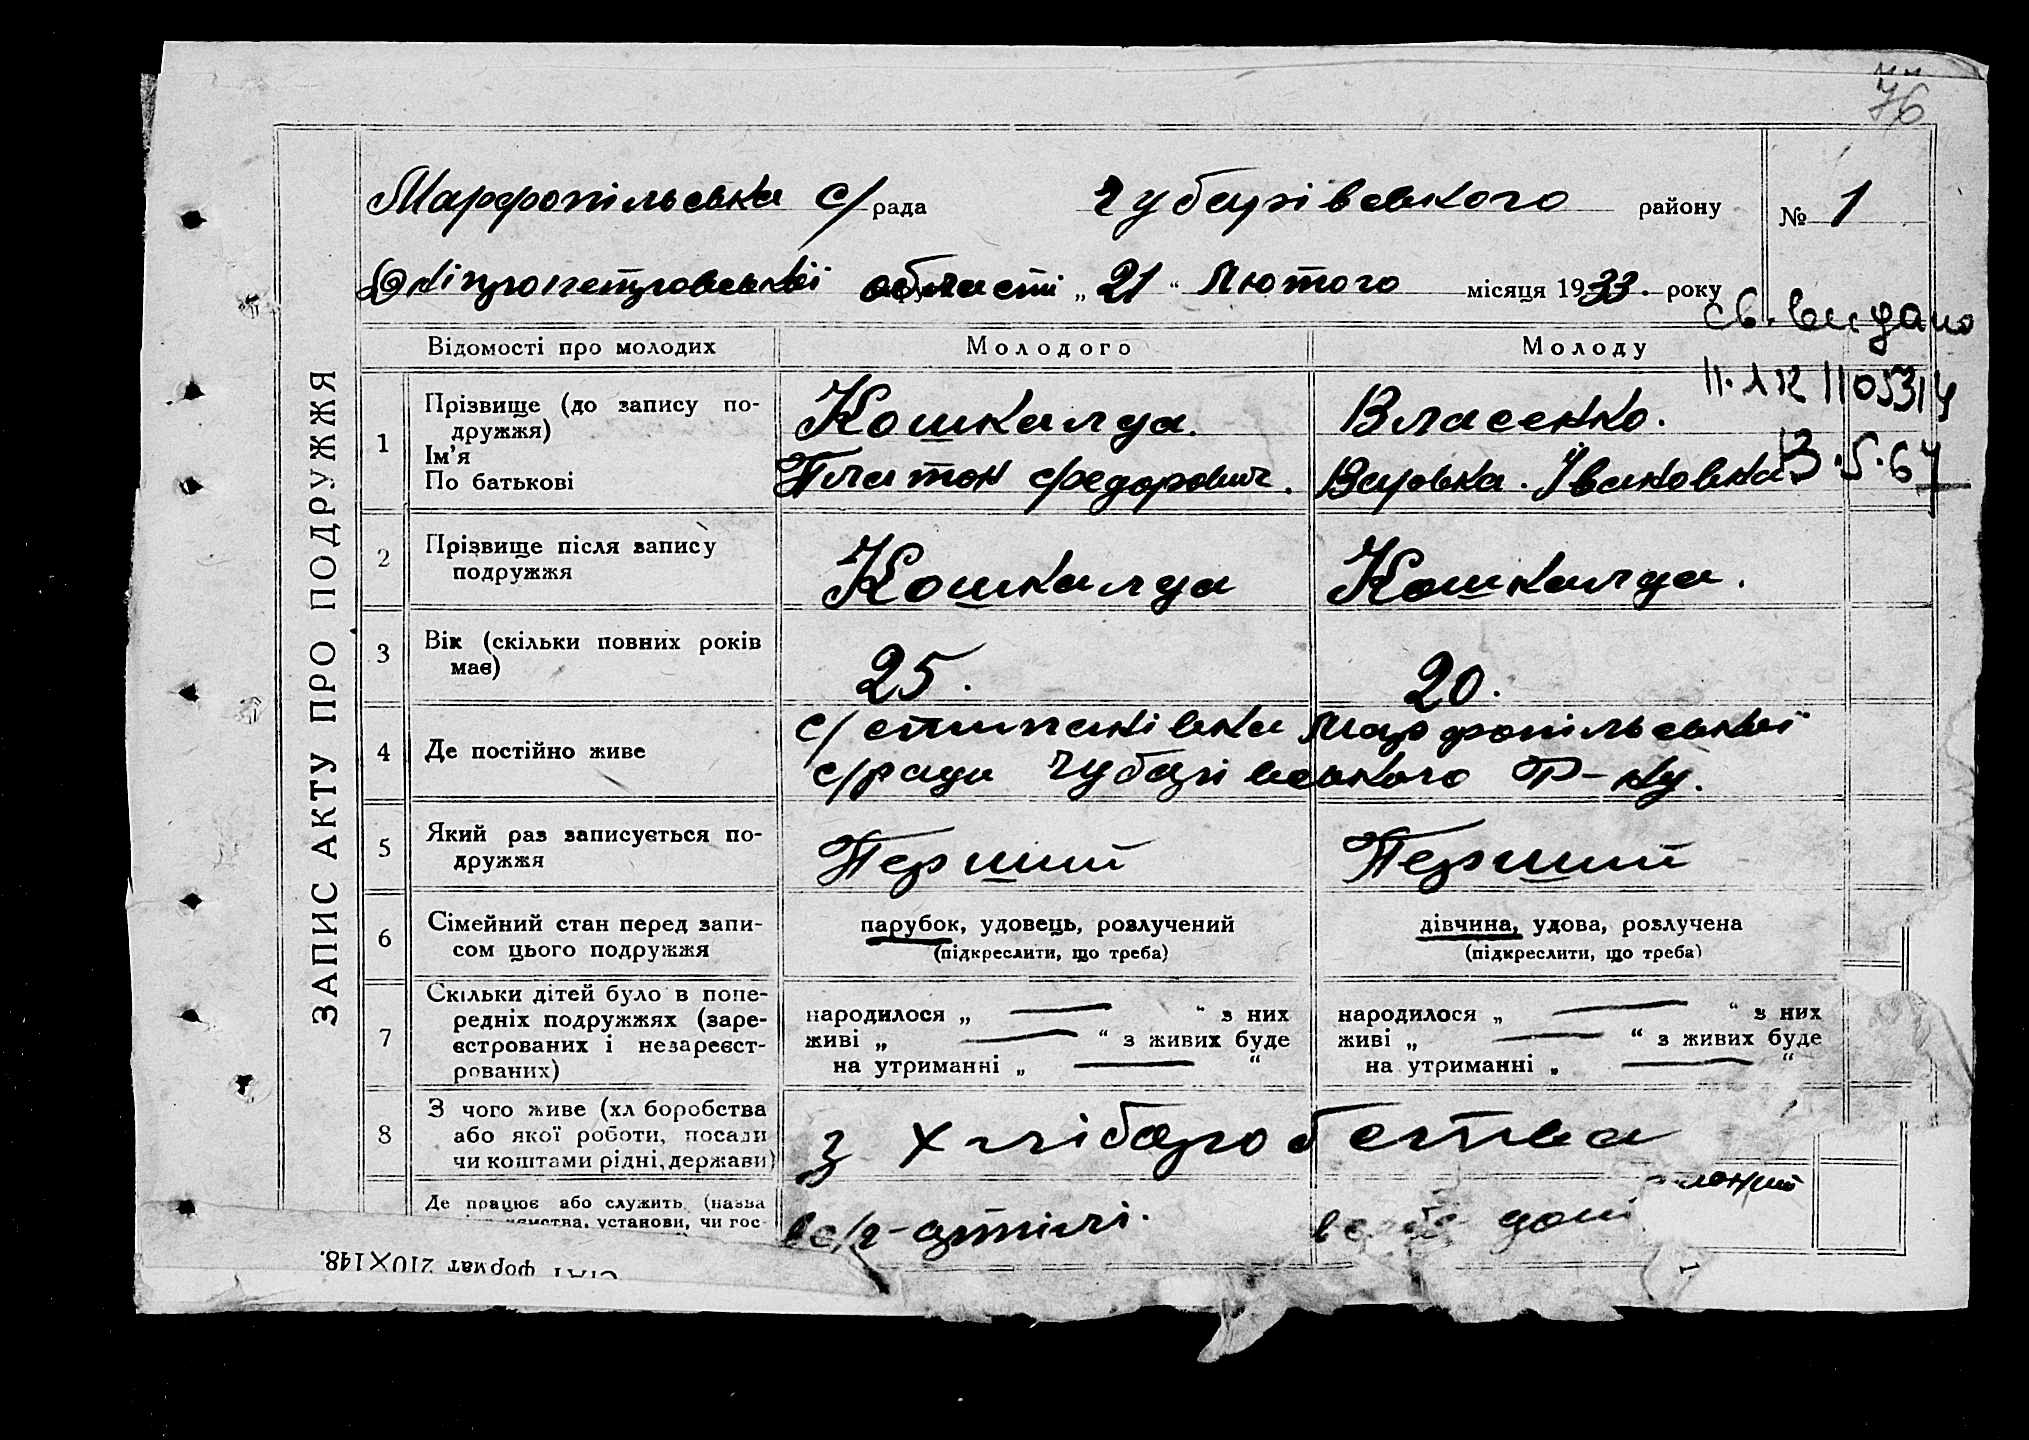 76
ЗАПИС АКТУ ПРО ПОДРУЖЖЯ
Марфопільська с/рада Чубарівського району № 1
Дніпропетровської області „ 21 “ Лютого місяця 1933. року
св. видано
Відомості про молодих Молодого Молоду
1105314
1 Прізвище (до запису по-
дружжя)
Ім'я
По батькові
Кошкалда. Власенко.
Платон Федорович. Варвка. Івановка
13.5.67
2 Прізвище після запису
подружжя
Кошкалда Кошкалда.
3 Вік (скільки повних років
має)
25. 20.
4 Де постійно живе
с/Степанівка Марфопільської
с/ради Чубарівського р-ну.
5 Який раз записується по-
дружжя
Перший Перший
6 Сімейний стан перед запи-
сом цього подружжя
парубок, удовець, розлучений
(підкреслити, що треба)
дівчина, удова, розлучена
(підкреслити, що треба)
7 Скільки дітей було в попе-
редніх подружжях (заре-
єстрованих і незареєст-
рованих)
народилося „ — “ з них
живі „ — “ з живих буде
на утриманні „ — “
народилося „ — “ з них
живі „ — “ з живих буде
на утриманні „ — “
8 З чого живе (хліборобства
або якої роботи, посади
чи коштами рідні, держави)
з хліборобства
Де працює або служить (назва
установи, чи гос-
в с/г-артілі.
формат 210×148.